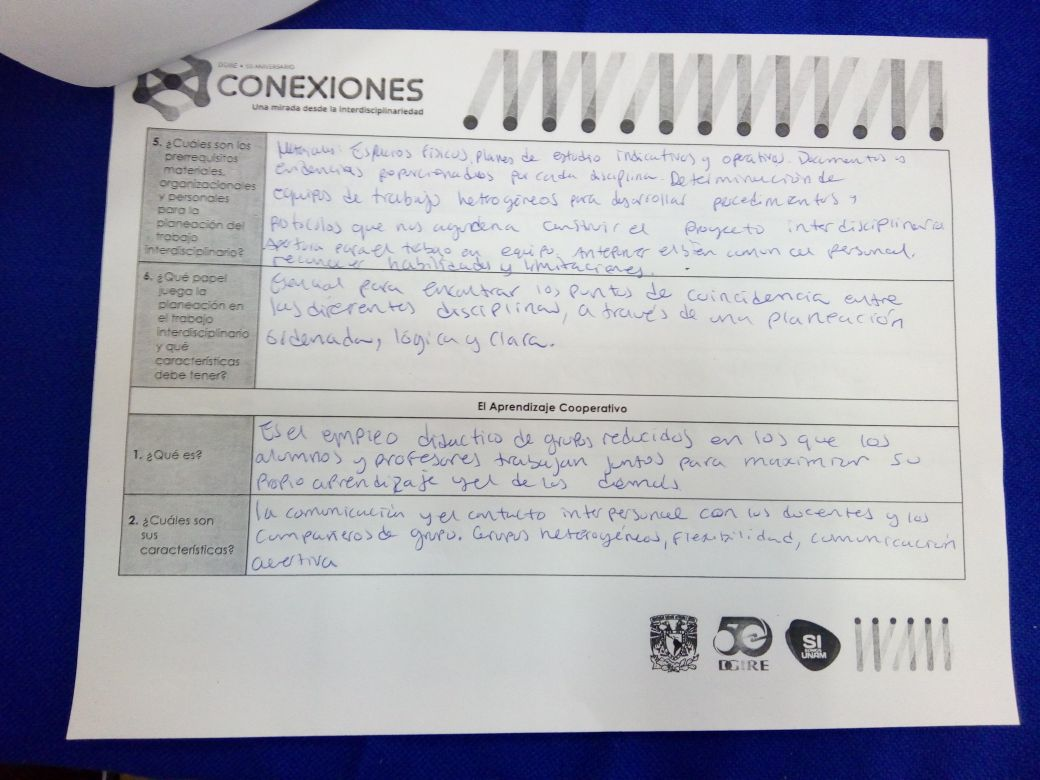 DGIRE • 50 ANIVERSARIO
CONEXIONES
Una mirada desde la interdisciplinariedad
5. ¿Cuáles son los
prerrequisitos
materiales,
organizacionales
y personales
para la
planeación del
trabajo
interdisciplinario?
Materiales: Espacios físicos, planes de estudio indicativos y operativos. Documentos o
evidencias proporcionados por cada disciplina. Determinación de
equipos de trabajo hetrogéneos para desarrollar procedimientos y
protocolos que nos ayuden a construir el proyecto interdisciplinario
Apertura para el trabajo en equipo. Anteponer el bien común al personal,
reconocer habilidades y limitaciones.
6. ¿Qué papel
juega la
planeación en
el trabajo
interdisciplinario
y qué
características
debe tener?
Esencial para encontrar los puntos de coincidencia entre
las diferentes disciplinas, a través de una planeación
ordenada, lógica y clara.
El Aprendizaje Cooperativo
1. ¿Qué es?
Es el empleo didactico de grupos reducidos en los que los
alumnos y profesores trabajan juntos para maximizar su
propio aprendizaje y el de los demás
2. ¿Cuáles son
sus
características?
la comunicación y el contacto interpersonal con los docentes y los
compañeros de grupo. Grupos heterogéneos, Flexibilidad, comunicación
asertiva
50
DGIRE
SI
SOMOS
UNAM